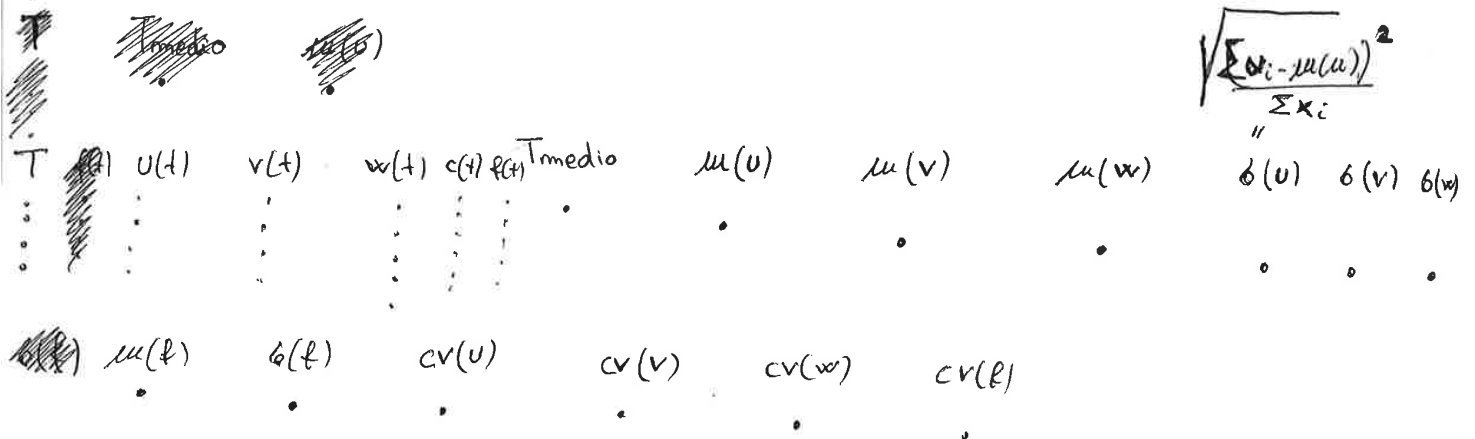 T Tmedio μ(u)
√(Σ(xi - μ(u))² / Σxi)
"
T u(t) v(t) w(t) c(t) f(t) Tmedio μ(u) μ(v) μ(w) σ(u) σ(v) σ(w)
μ(f) σ(f) cv(u) cv(v) cv(w) cv(f)